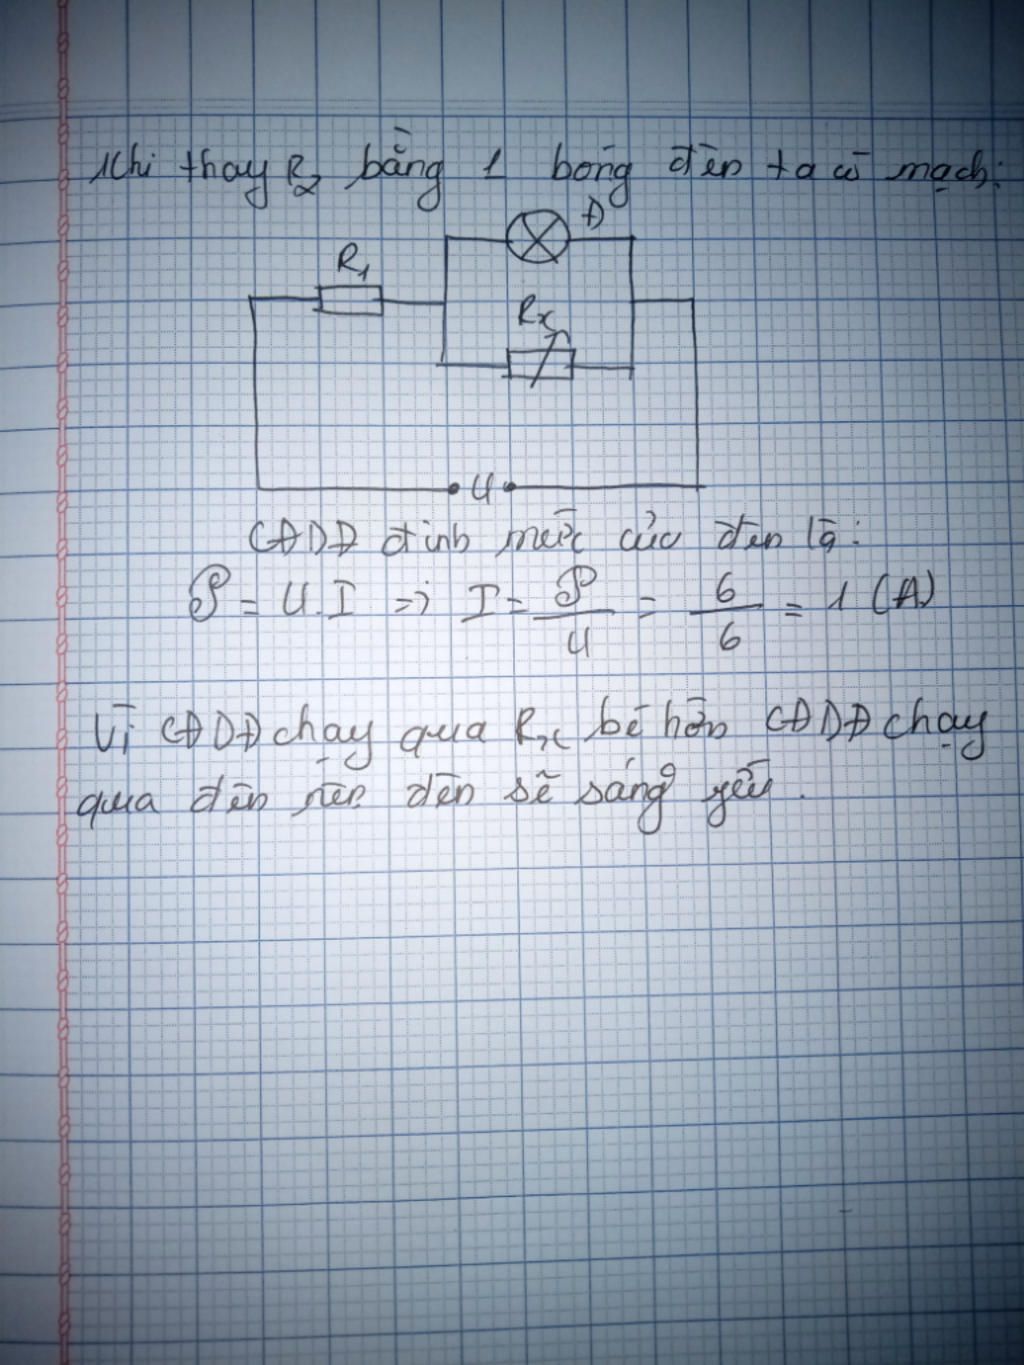 Khi thay R2 bằng 1 bóng đèn ta có mạch:
Đ
R1
Rx
U
CĐDĐ định mức của đèn là:
P = U.I => I = P/U = 6/6 = 1 (A)
Vì CĐDĐ chạy qua Rx bé hơn CĐDĐ chạy
qua đèn nên đèn sẽ sáng yếu.